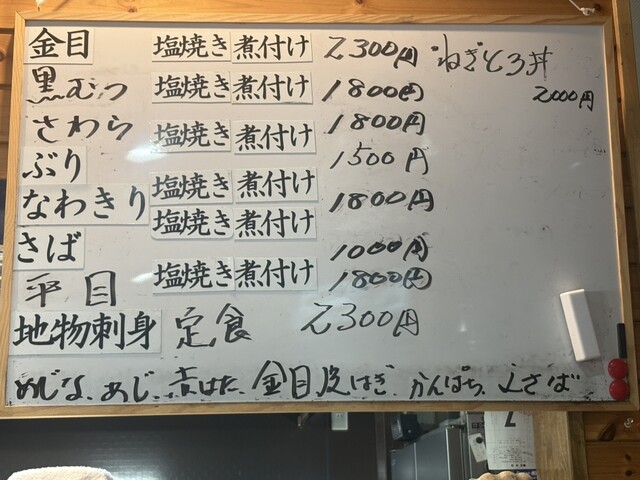 金目 塩焼き 煮付け 2300円 ねぎとろ丼
黒むつ 塩焼き 煮付け 1800円 2000円
さわら 塩焼き 煮付け 1800円
ぶり 1500円
なわきり 塩焼き 煮付け 1800円
さば 塩焼き 煮付け 1000円
平目 塩焼き 煮付け 1800円
地物刺身 定食 2300円
めじな、あじ、赤はた、金目、皮はぎ、かんぱち、
7